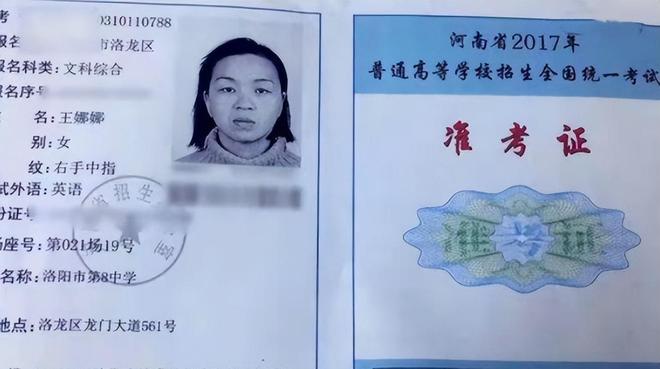 考 0310110788
报名 市洛龙区
报名科类：文科综合
报名序号
名：王娜娜
别：女
纹：右手中指
试外语：英语
份证号
场座号：第021场19号
名称：洛阳市第8中学
地点：洛龙区龙门大道561号
省招生
河南省2017年
普通高等学校招生全国统一考试
准考证